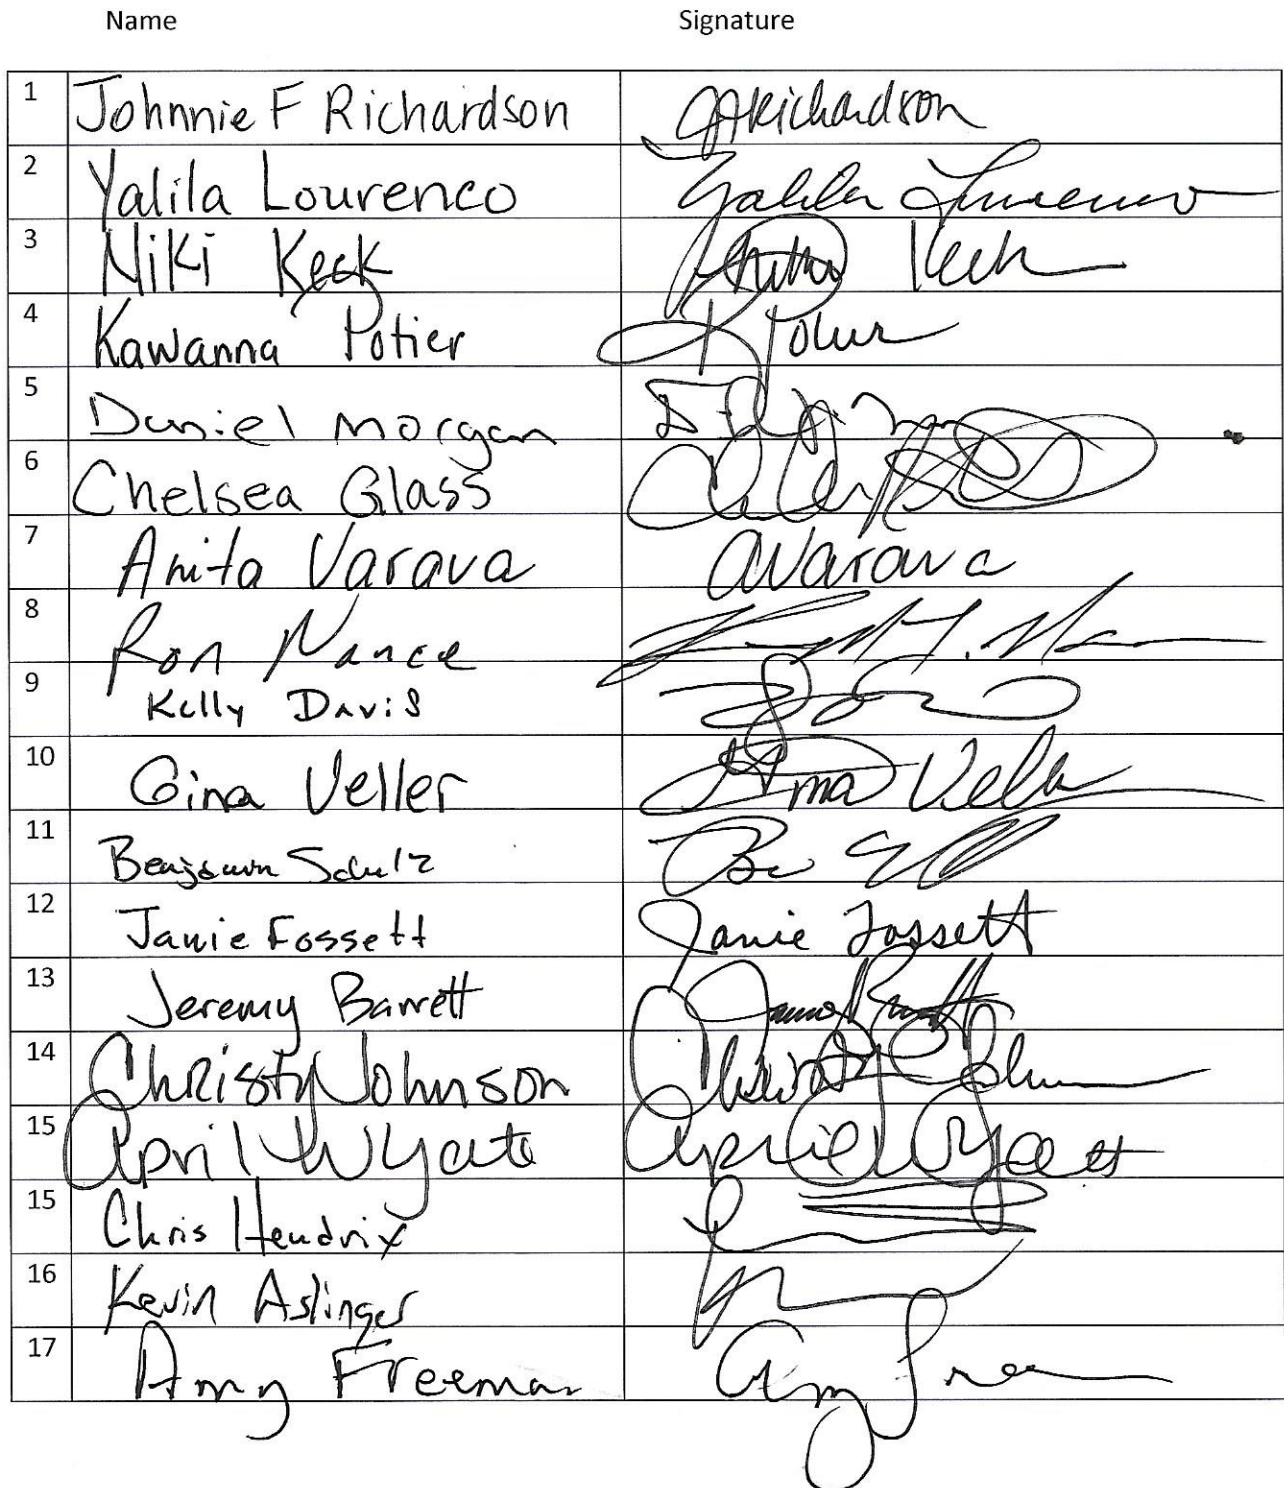 Name Signature
1 Johnnie F Richardson JFRichardson
2 Yalila Lourenco Yalila Lourenco
3 Niki Keck Keck
4 Kawanna Potier K Potier
5 Daniel Morgan
6 Chelsea Glass
7 Anita Varava AVarava
8 Ron Nance
9 Kelly Davis
10 Gina Veller Gina Veller
11 Benjamin Schulz
12 Janie Fossett Janie Fossett
13 Jeremy Barrett
14 Christy Johnson Christy Johnson
15 April Wyatt April Wyatt
15 Chris Hendrix
16 Kevin Aslinger
17 Amy Freeman Amy Free